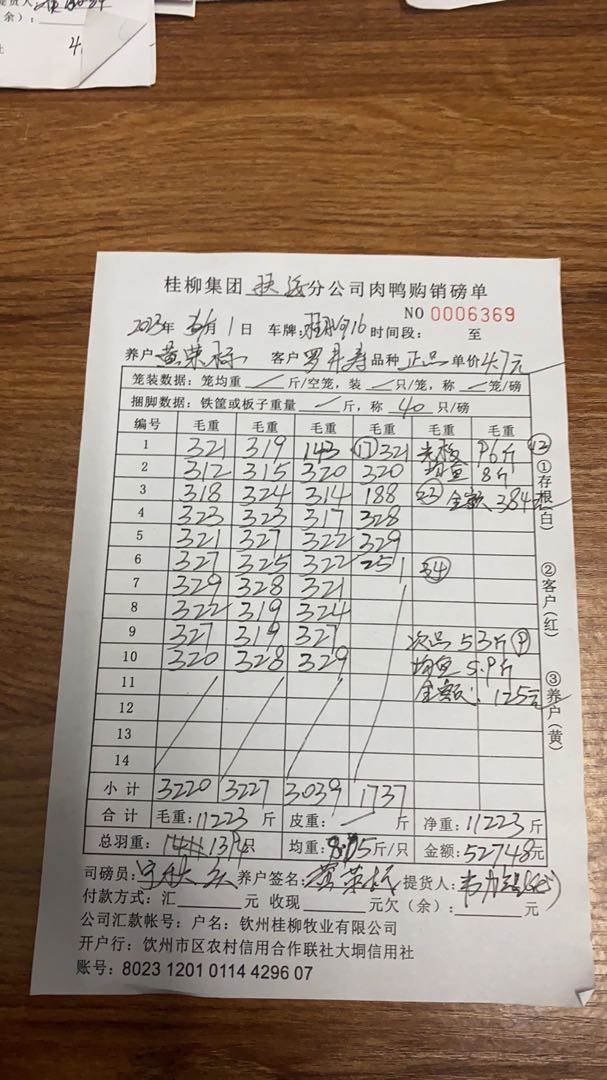 桂柳集团 扶绥 分公司肉鸭购销磅单
NO 0006369
2023年 月 1 日 车牌: 时间段: 至
养户 黄荣标 客户 罗 寿 品种 正品 单价 4.7元
笼装数据: 笼均重 斤/空笼, 装 只/笼, 称 笼/磅
捆脚数据: 铁筐或板子重量 斤, 称 40 只/磅
编号 毛重 毛重 毛重 毛重 毛重 毛重
1 321 319 143 ⑰ 321
2 312 315 320 320 均重 8斤
3 318 324 314 188 金额 384元
4 323 323 317 328
5 321 327 322 329
6 327 325 322 251 34
7 329 328 321
8 322 319 324
9 327 319 327 次品 53斤
10 320 328 329 均重 5.9斤
11 金额: 125元
12
13
14
小计 3220 3227 3039 1737
合计 毛重: 11223 斤 皮重: 斤 净重: 11223 斤
总羽重: 只 均重: 斤/只 金额: 52748元
司磅员: 养户签名: 黄荣标 提货人:
付款方式: 汇 元 收现 元欠(余): 元
公司汇款帐号: 户名: 钦州桂柳牧业有限公司
开户行: 钦州市区农村信用合作联社大垌信用社
账号: 8023 1201 0114 4296 07
①存根(白)
②客户(红)
③养户(黄)